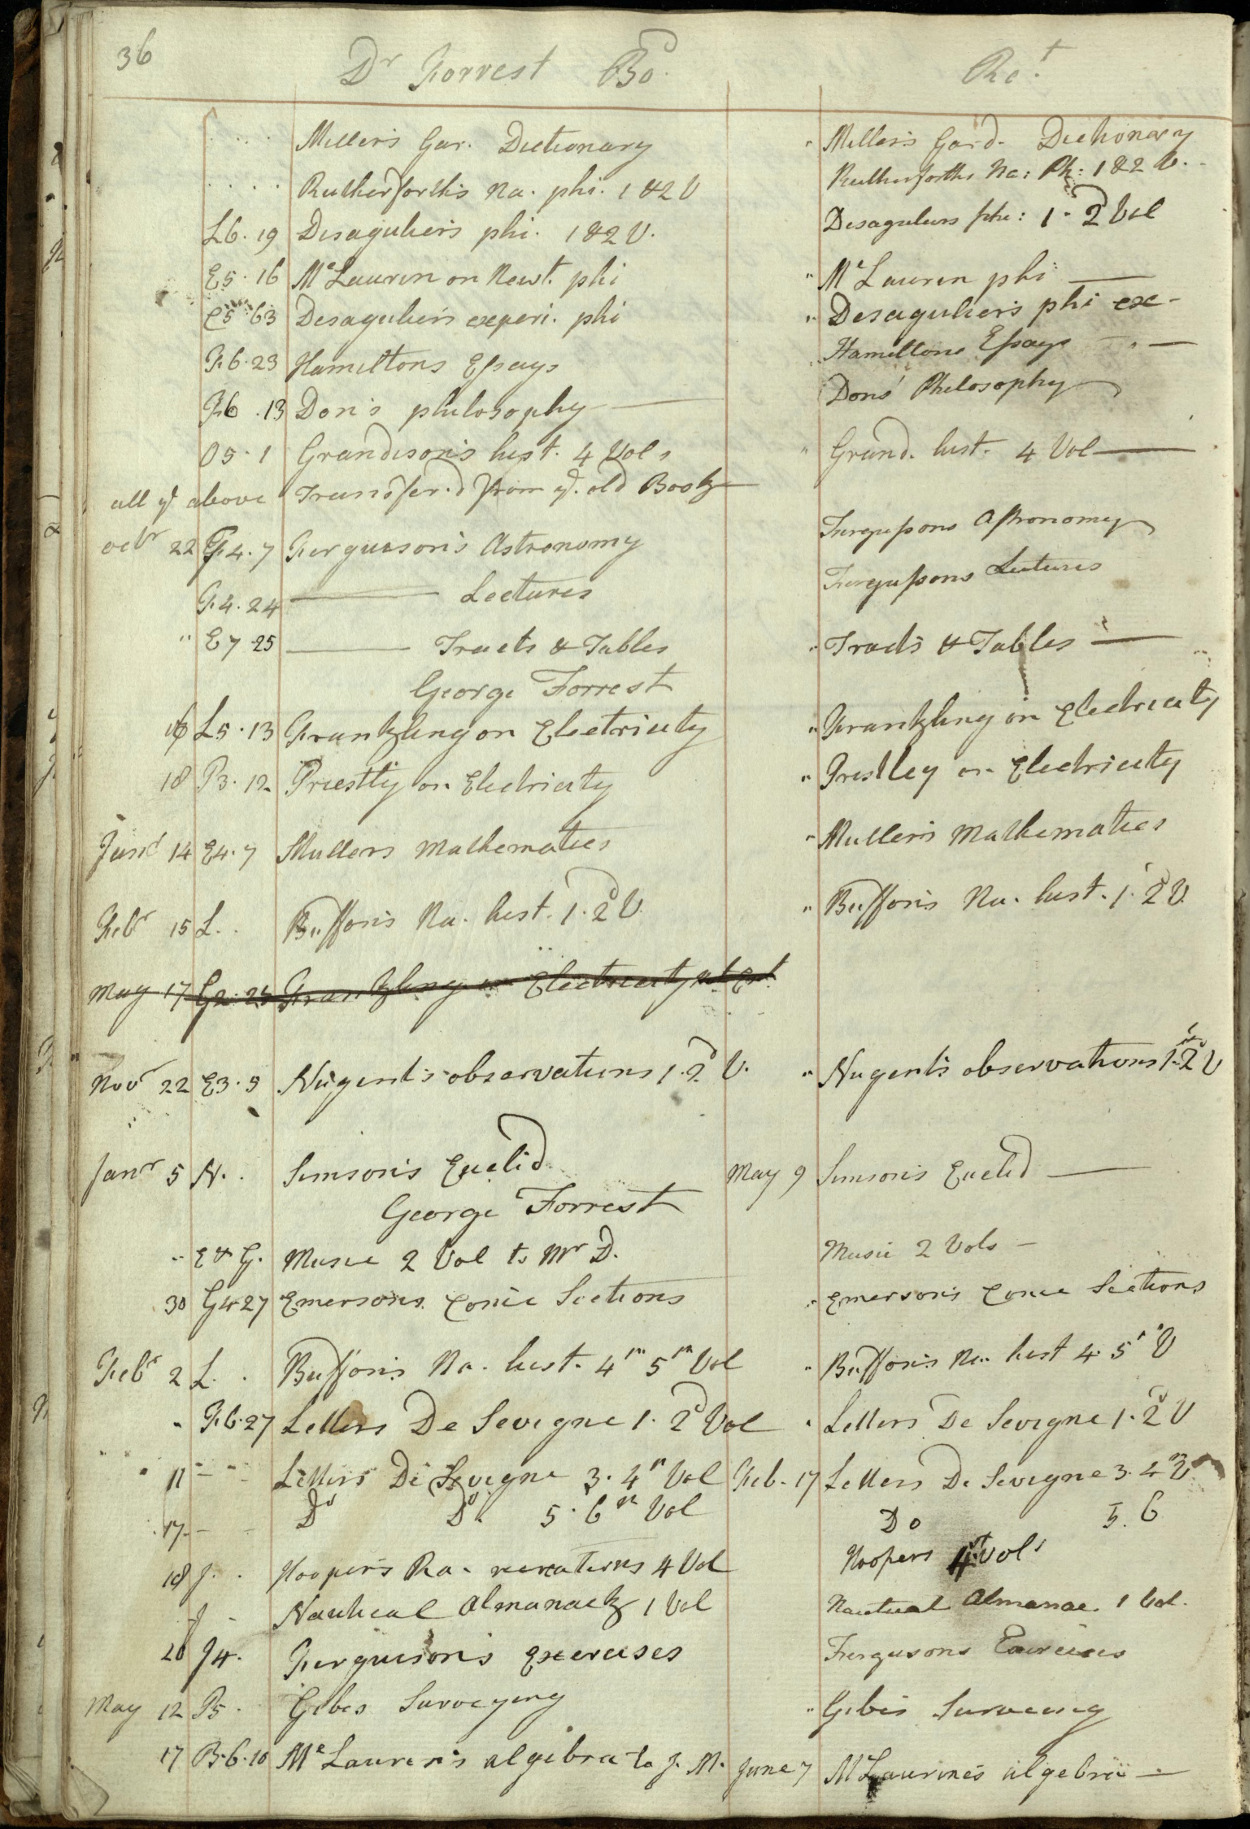 36 Dr Forrest Bo. Ret.
Miller's Gar. Dictionary " Miller's Gard. Dictionary
Rutherforth's Na. phi. 1 & 2 V Rutherforths Na: Ph: 1 & 2 V.
L6.19 Desagulier's phi. 1 & 2 V. Desaguliers phi: 1. 2d Vol
E5.16 McLaurin on Newt. phi " McLaurin phi
E5 63 Desagulier's experi. phi " Desagulier's phi ex
F6.23 Hamiltons Essays Hamiltons Essays
F6.13 Don's philosophy Dons' Philosophy
O5.1 Grandison's hist. 4 Vols " Grand. hist. 4 Vol
all ye above Transfer.d from ye. old Book
octbr 22 F4.7 Fergusson's Astronomy Furgussons Astronomy
F4.24 Lectures Furgussons Lectures
" E7 25 Tracts & Tables " Tracts & Tables
George Forrest
L5.13 Frankling on Electricity " Frankling on Electricity
18 P3.12 Priestly on Electricity " Prestley on Electricity
14 E4.7 Mullers Mathematics " Muller's Mathematics
Febr 15 L. Buffon's Na. hist. 1. 2d V. " Buffon's Na. hist. 1. 2d V.
May 17 G2.23 Frankling on Electricity
Novr 22 E3.9 Nugent's observations 1. 2d V. " Nugent's observations 1. 2d V
Janr 5 N. Simson's Euclid May 9 Simson's Euclid
George Forrest
" E & G. Music 2 Vol to Mr D. Music 2 Vols
30 G4 27 Emerson's Conic Sections " Emerson's Conic Sections
Febr 2 L. Buffon's Na. hist. 4th 5th Vol " Buffon's Na. hist 4. 5th V
" F6.27 Letters De Sevigne 1. 2d Vol " Letters De Sevigne 1. 2d V
" 11 Letters De Sevigne 3. 4th Vol Feb. 17 Letters De Sevigne 3. 4th V.
17 Do Do. 5. 6th Vol Do 5. 6
18 J. Hooper's Ra. recations 4 Vol Hoopers 4 Vols
J Nautical Almanack 1 Vol Nautical Almanac 1 Vol.
20 J4. Ferguson's Exercises Fergusons Exercises
May 12 P5. Gibes Surveying " Gibes Surveing
17 B.6.10 McLaurin's algebra to J. M. June 7 McLaurines algebra